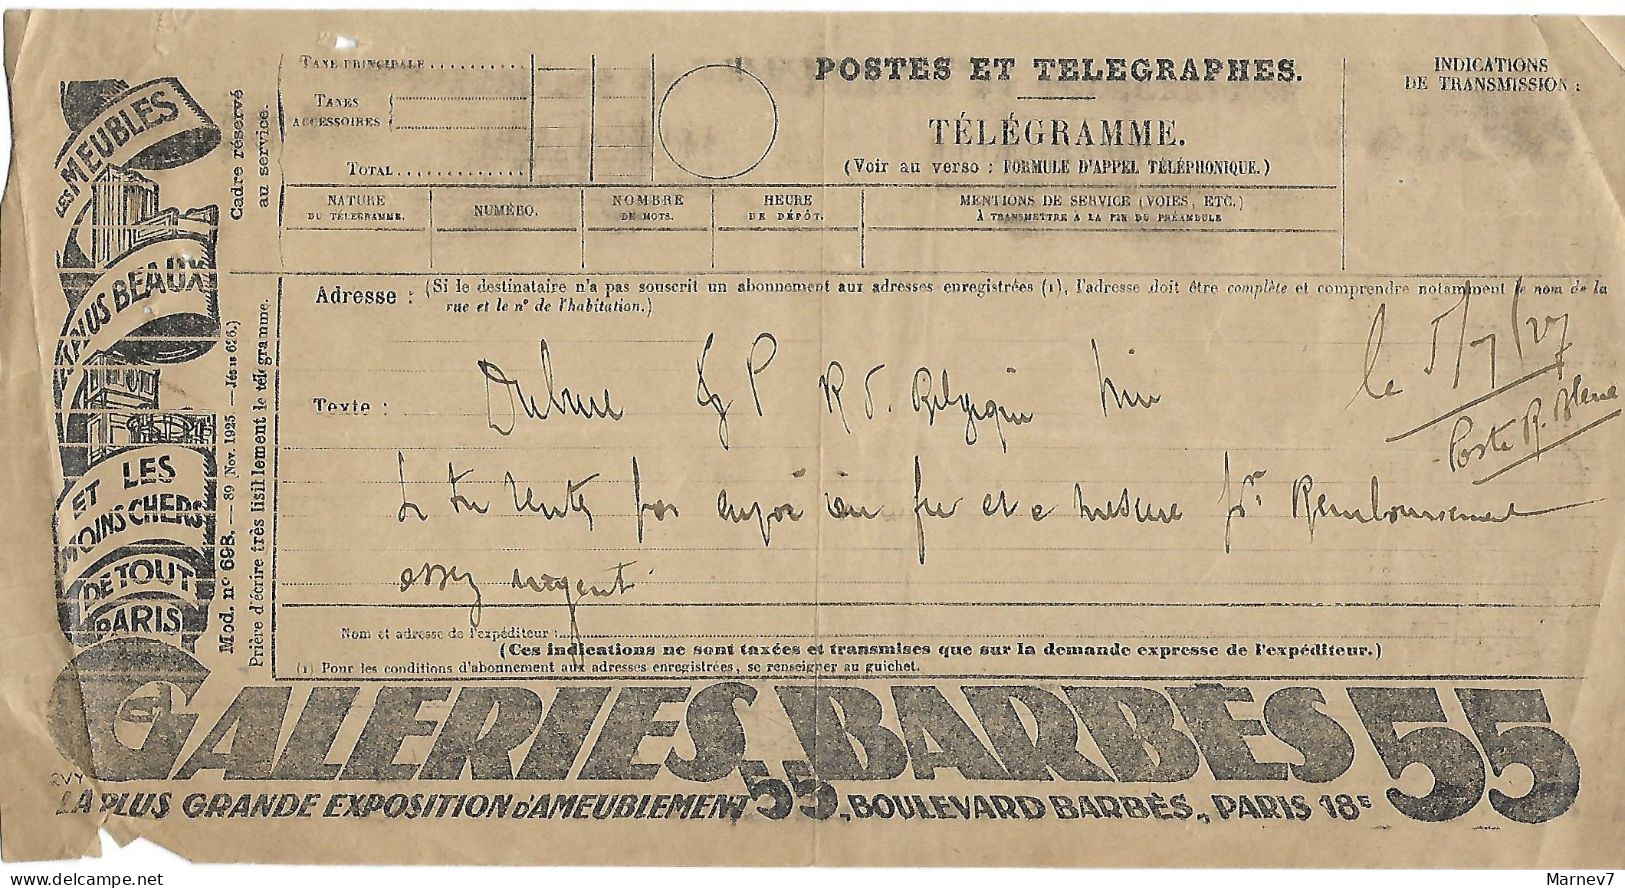 LES MEUBLES
LES PLUS BEAUX
ET LES
MOINS CHERS
DE TOUT
PARIS
Cadre réservé
au service.
TAXE PRINCIPALE
TAXES
ACCESSOIRES
TOTAL
POSTES ET TELEGRAPHES.
TÉLÉGRAMME.
(Voir au verso : FORMULE D'APPEL TÉLÉPHONIQUE.)
INDICATIONS
DE TRANSMISSION :
NATURE
DU TÉLÉGRAMME.
NUMÉRO.
NOMBRE
DE MOTS.
HEURE
DE DÉPÔT.
MENTIONS DE SERVICE (VOIES, ETC.)
À TRANSMETTRE À LA FIN DU PRÉAMBULE
Mod. n° 698. — 89 (Nov. 1925 —
Prière d'écrire très lisiblement le télégramme.
Adresse : (Si le destinataire n'a pas souscrit un abonnement aux adresses enregistrées (1), l'adresse doit être complète et comprendre notamment le nom de la
rue et le n° de l'habitation.)
le 5/7/27
Poste R. Blene
Texte :
P R Belgique
par et mesure pr Remboursement
assez urgent
Nom et adresse de l'expéditeur :
(Ces indications ne sont taxées et transmises que sur la demande expresse de l'expéditeur.)
(1) Pour les conditions d'abonnement aux adresses enregistrées, se renseigner au guichet.
GALERIES BARBÈS 55
LA PLUS GRANDE EXPOSITION D'AMEUBLEMENT 55, BOULEVARD BARBÈS, PARIS 18E
Marnev7